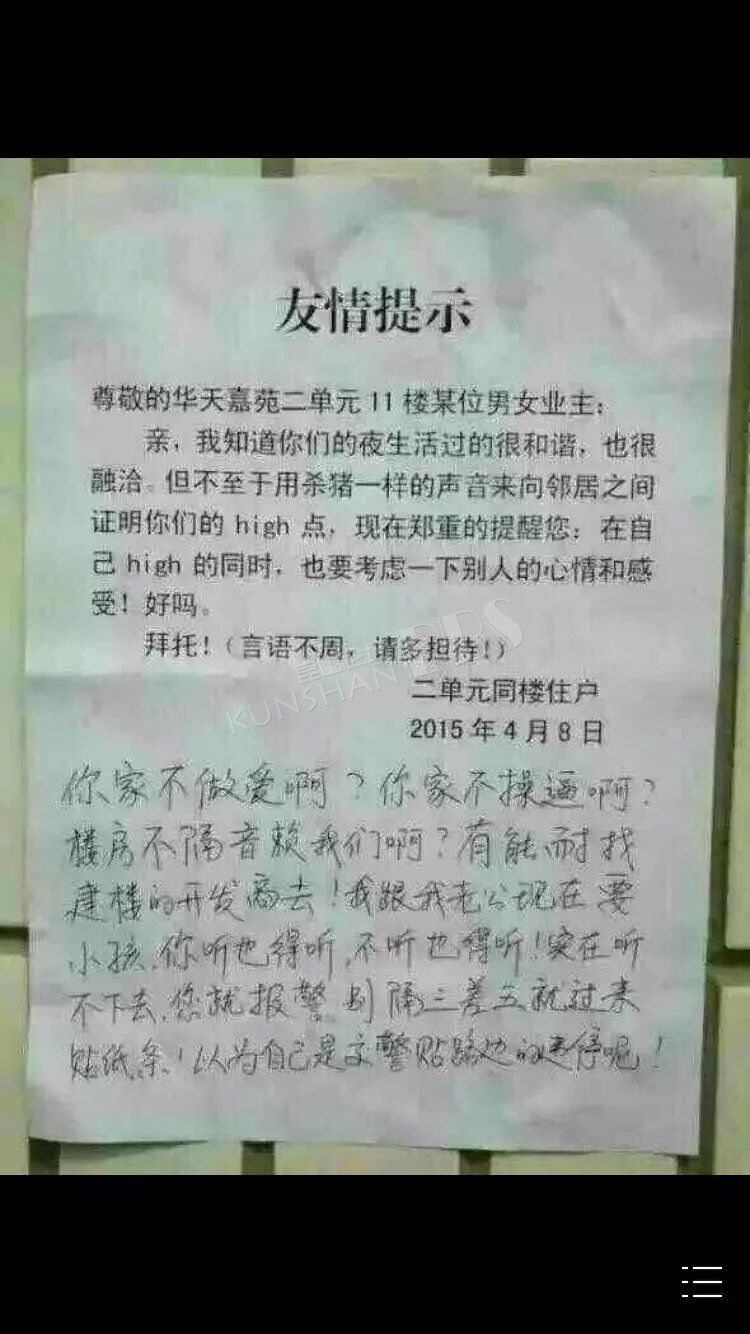 友情提示
尊敬的华天嘉苑二单元11楼某位男女业主:
亲,我知道你们的夜生活过的很和谐,也很
融洽。但不至于用杀猪一样的声音来向邻居之间
证明你们的high点,现在郑重的提醒您:在自
己high的同时,也要考虑一下别人的心情和感
受!好吗。
拜托!(言语不周,请多担待!)
KUNSHAN PPS
二单元同楼住户
2015年4月8日
你家不做爱啊?你家不操逼啊?
楼房不隔音赖我们啊?有能耐找
建楼的开发商去!我跟我老公现在要
小孩、你听也得听、不听也得听!实在听
不下去、您就报警 别隔三差五就过来
贴纸条!以为自己是交警贴路边的违停呢!